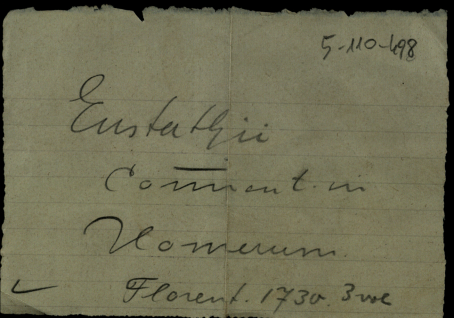 5-110-498
Eustathii
Comment. in
Homerum.
Florent. 1730. 3 vol